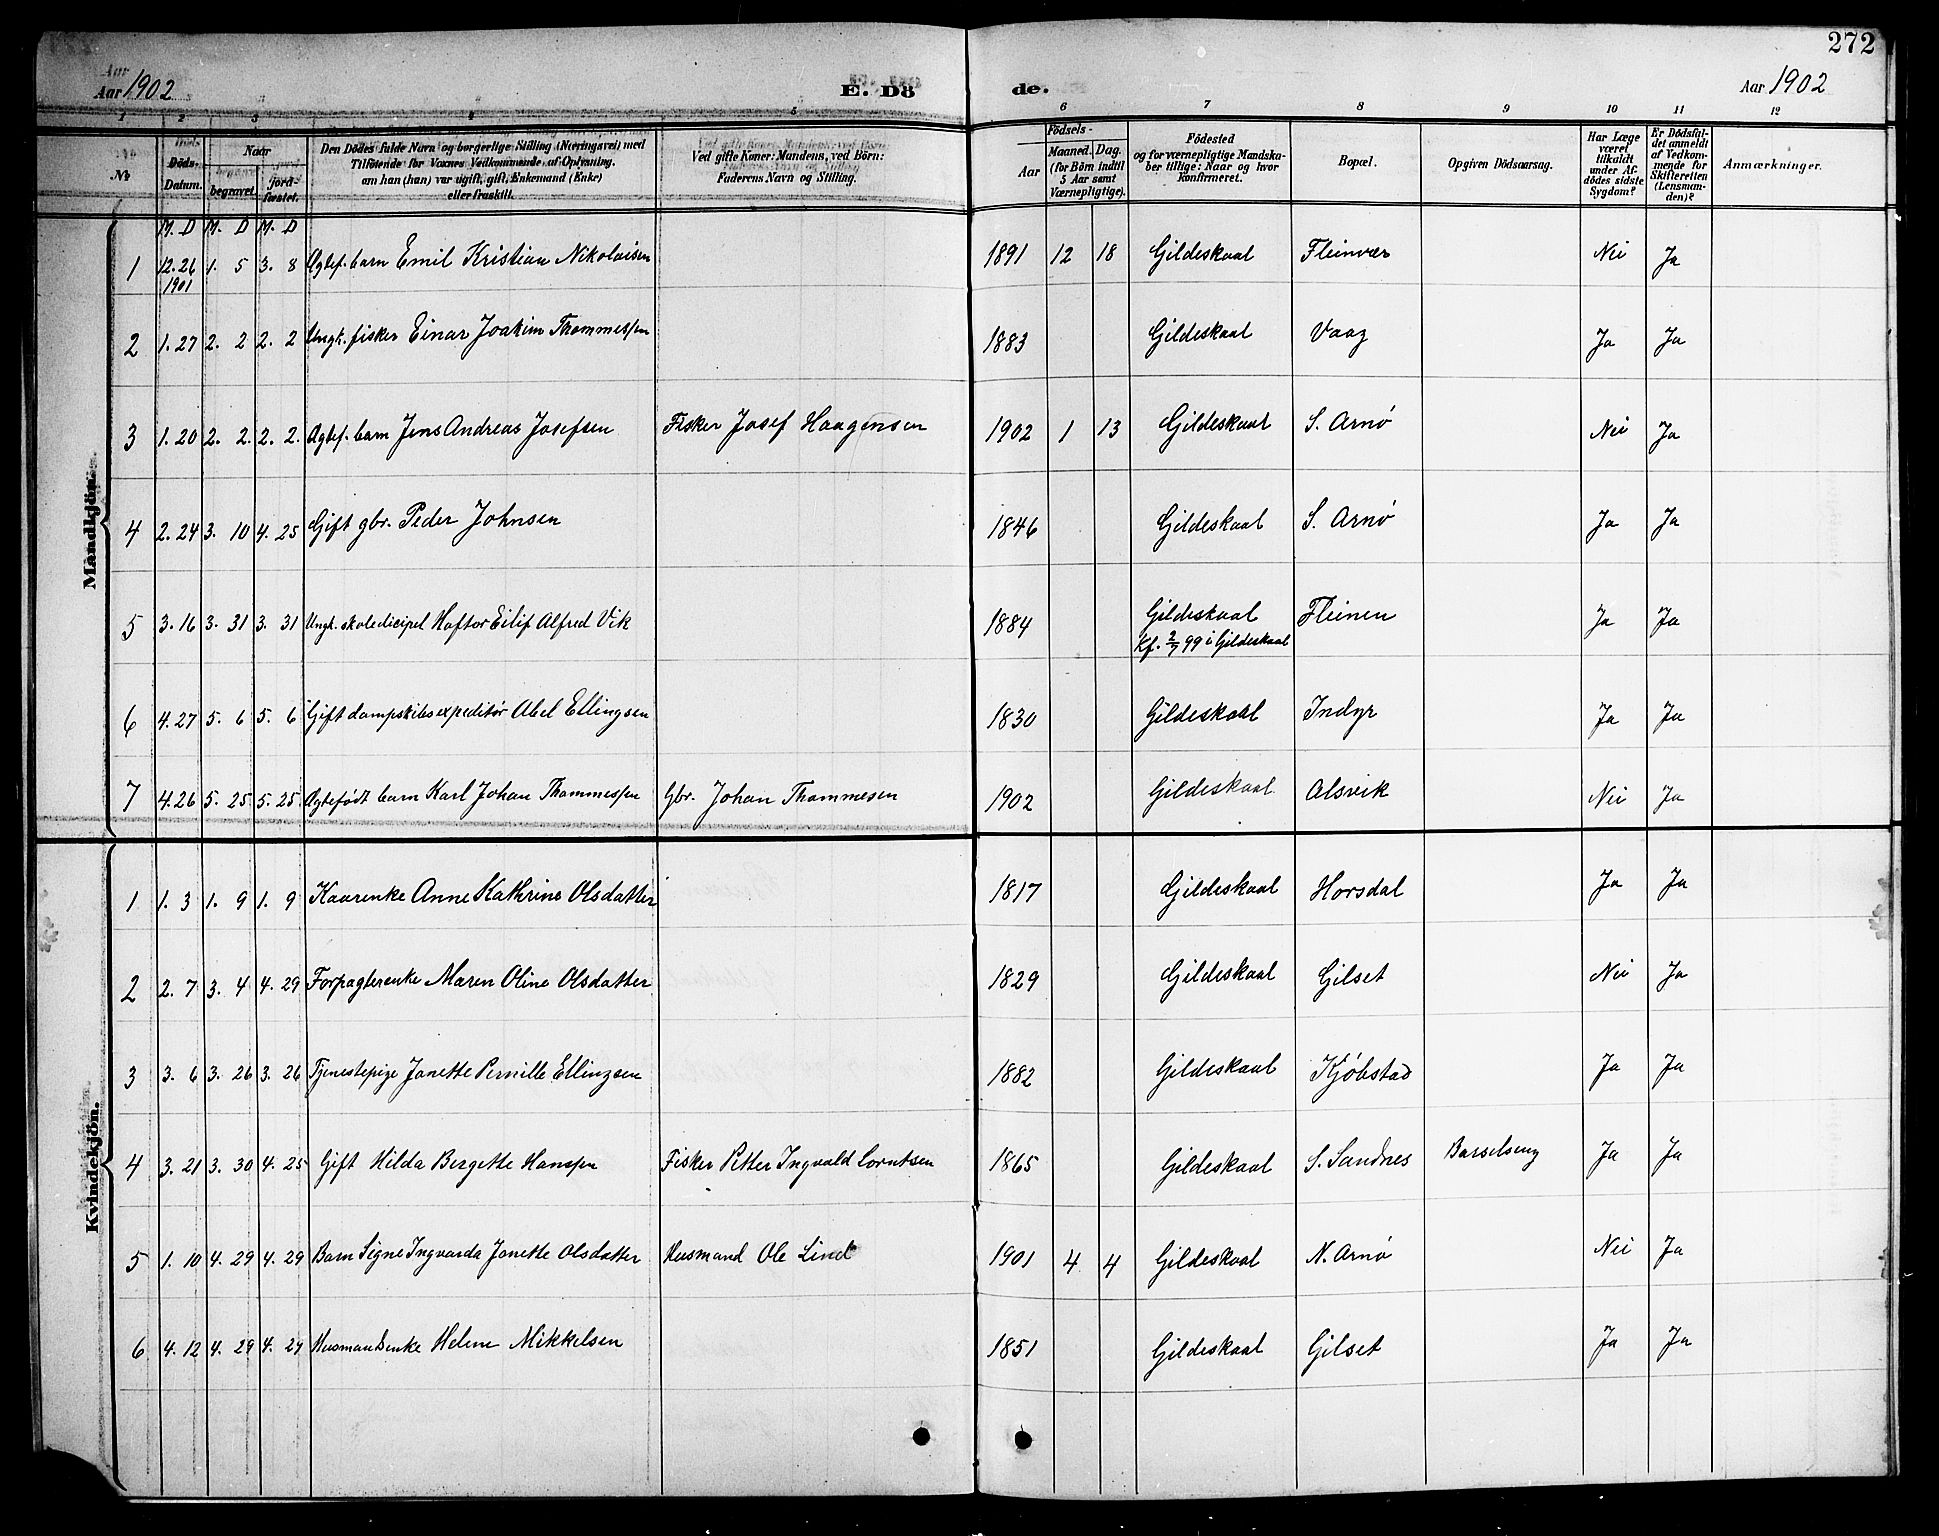 272
Aar 1902 E. Dö
de. Aar 1902
1 2 3 4 5
6 7 8 9 10 11 12
№
Døds-Datum.
Naar
begravet.
jord-fæstet.
Den Dødes fulde Navn og borgerlige Stilling (Næringsvei) med
Tilføiende for Voxnes Vedkommende af Oplysning,
om han (hun) var ugift, gift, Enkemand (Enke)
eller fraskilt.
Ved gifte Koner: Mandens, ved Børn:
Faderens Navn og Stilling.
Fødsels-
Aar
Maaned. Dag.
(for Børn indtil
5 Aar samt
Værnepligtige).
Fødested
og for værnepligtige Mandska-
ber tillige: Naar og hvor
konfirmeret.
Bopæl.
Opgiven Dødsaarsag.
Har Læge
været
tilkaldt
under Af-
dødes sidste
Sygdom?
Er Dødsfal-
det anmeldt
af Vedkom-
mende for
Skifteretten
(Lensman-
den)?
Anmærkninger.
Mandkjön.
M. D M. D M. D
1 12.26 1. 5 3. 8 Ægtef. barn Emil Kristian Nikolaisen 1891 12 18 Gildeskaal Fleinvær Nei Ja
1901
2 1.27 2. 2 2. 2 Ungk. fisker Einar Joakim Thommessen 1883 Gildeskaal Vaag Ja Ja
3 1.20 2. 2. 2. 2. Ægtef. barn Jens Andreas Josefsen Fisker Josef Haagensen 1902 1 13 Gildeskaal S. Arnø Nei Ja
4 2.24 3. 10 4. 25 Gift gbr. Peder Johnsen 1846 Gildeskaal S. Arnø Ja Ja
5 3.16 3. 31 3. 31 Ungk. skoledicipel Haftor Eilif Alfred Vik 1884 Gildeskaal Fleinen Ja Ja
Kf. 2/7 99 i Gildeskaal
6 4.27 5. 6 5. 6 Gift dampskibsexpeditør Abel Ellingsen 1830 Gildeskaal Indyr Ja Ja
7 4.26 5. 25 5. 25 Ægtefødt barn Karl Johan Thommessen Gbr. Johan Thommesen 1902 Gildeskaal Alsvik Nei Ja
Kvindekjön.
1 1. 3 1. 9 1. 9 Kaarenke Anne Kathrine Olsdatter 1817 Gildeskaal Horsdal Ja Ja
2 2. 7 3. 4 4. 29 Forpagterenke Maren Oline Olsdatter 1829 Gildeskaal Gilset Nei Ja
3 3. 6 3. 26 3. 26 Tjenestepige Janette Pernille Ellingsen 1882 Gildeskaal Kjøbstad Ja Ja
4 3. 21 3. 30 4. 25 Gift Hilda Bergette Hanssen Fisker Petter Ingvald Lorntsen 1865 Gildeskaal S. Sandnes Barselseng Ja Ja
5 1. 10 4. 29 4. 29 Barn Signe Ingvarda Janette Olsdatter Husmand Ole Lind 1901 4 4 Gildeskaal N. Arnø Nei Ja
6 4. 12 4. 29 4. 29 Husmandsenke Helene Mikkelsen 1851 Gildeskaal Gilset Ja Ja